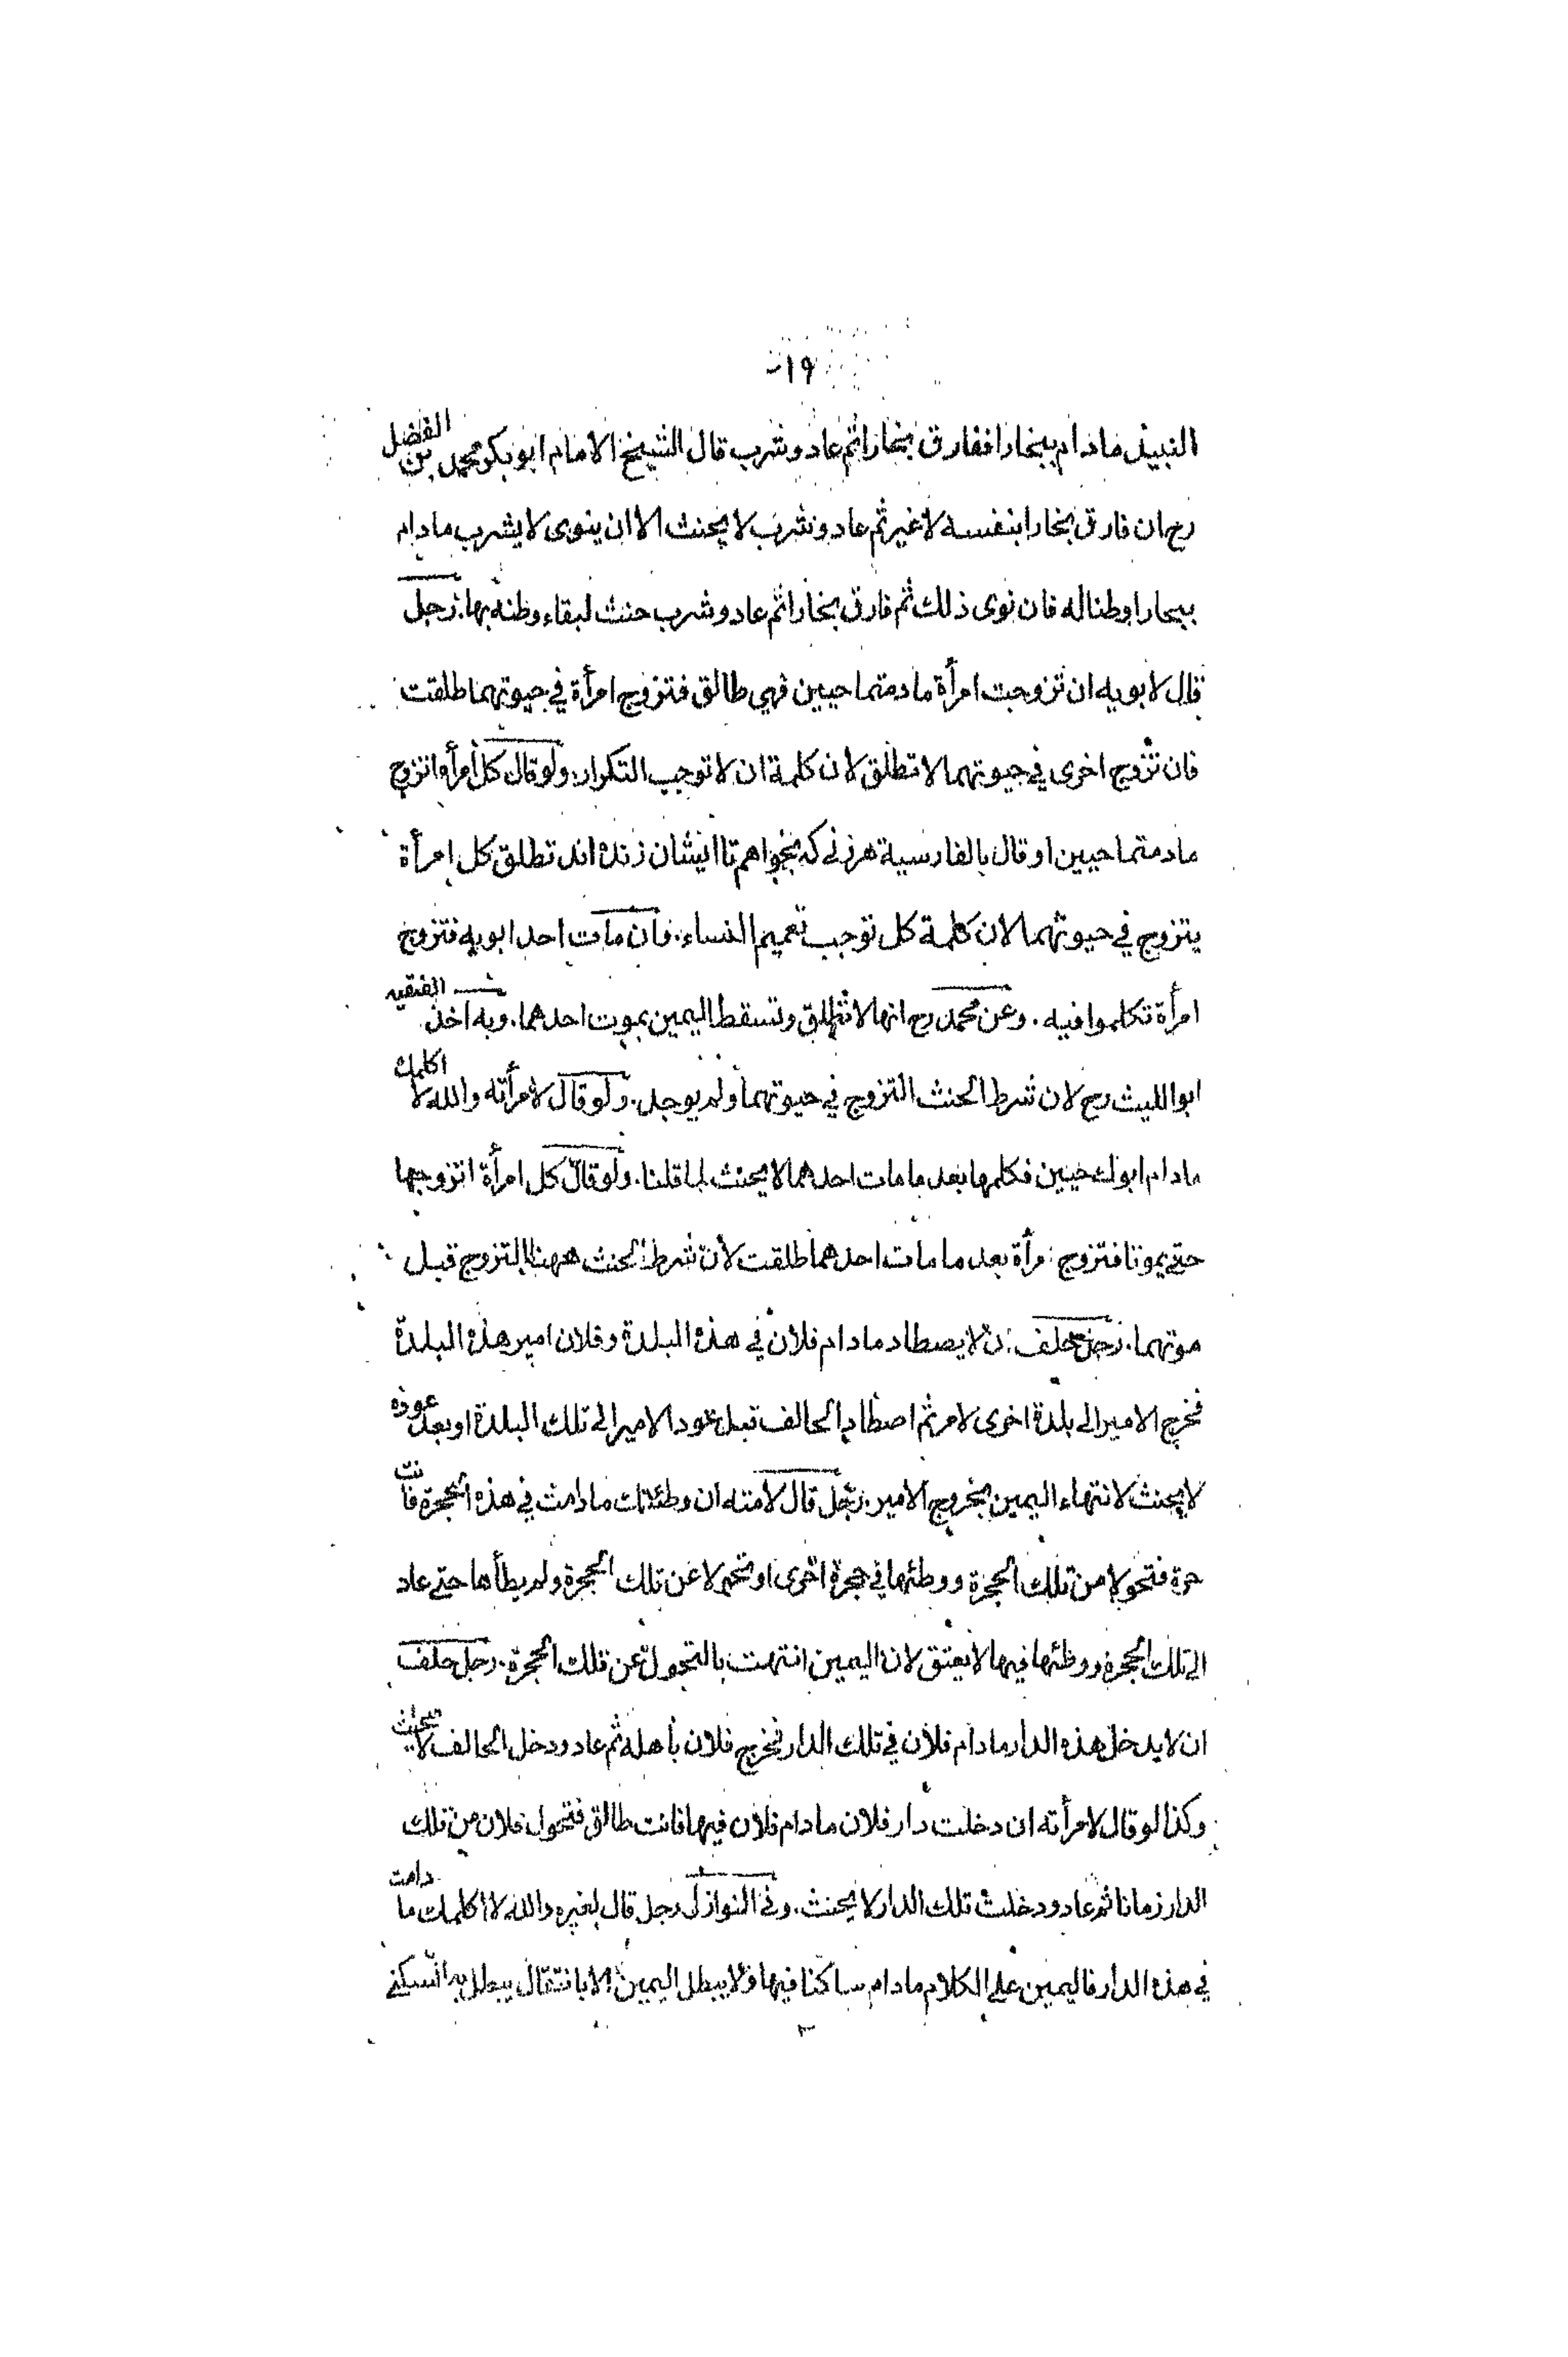 ١٩
النبيذ مادام ببخارا ففارق بخارا ثم عاد وشرب قال الشيخ الامام ابو بكر محمد بن الفضل
رح ان فارق بخارا بنفسه لا غير ثم عاد وشرب لا يحنث الا ان ينوى لا يشرب مادام
ببخارا وطنا له فان نوى ذلك ثم فارق بخارا ثم عاد وشرب حنث لبقاء وطنه بها . رجل
قال لابويه ان تزوجت امرأة مادمتما حيين فهي طالق فتزوج امرأة في حيوتهما طلقت
فان تزوج اخرى في حيوتهما لا تطلق لان كلمة ان لا توجب التكرار . ولو قال كل امرأة اتزوج
مادمتما حيين او قال بالفارسية هر زنى كه بخواهم تا ايشان زنده اند تطلق كل امرأة
يتزوج في حيوتهما لان كلمة كل توجب تعميم النساء . فان مات احد ابويه فتزوج
امرأة تكلموا فيه . وعن محمد رح انها لا تطلق وتسقط اليمين بموت احدهما . وبه اخذ الفقيه
ابو الليث رح لان شرط الحنث التزوج في حيوتهما ولم يوجد . ولو قال لامرأته والله لا اكلمك
مادام ابوك حيين فكلمها بعد ما مات احدهما لا يحنث لما قلنا . ولو قال كل امرأة اتزوجها
حتى يموتا فتزوج امرأة بعد ما مات احدهما طلقت لان شرط الحنث ههنا التزوج قبل
موتهما . رجل حلف ان لا يصطاد مادام فلان في هذه البلدة وفلان امير هذه البلدة
فخرج الامير الى بلدة اخرى لامر ثم اصطاد الحالف قبل عود الامير الى تلك البلدة او بعد عوده
لا يحنث لانتهاء اليمين بخروج الامير . رجل قال لامته ان وطئتك مادامت في هذه الحجرة فانت
حرة فتحولا من تلك الحجرة ووطئها في حجرة اخرى او تحولا عن تلك الحجرة ولم يطأها حتى عاد
الى تلك الحجرة ووطئها فيها لا يعتق لان اليمين انتهت بالتحول عن تلك الحجرة . رجل حلف
ان لا يدخل هذه الدار مادام فلان في تلك الدار فخرج فلان بأهله ثم عاد ودخل الحالف لا يحنث
وكذا لو قال لامرأته ان دخلت دار فلان مادام فلان فيها فانت طالق فتحول فلان من تلك
الدار زمانا ثم عاد ودخلت تلك الدار لا يحنث . وفي النوازل رجل قال لغيره والله لا اكلمك ما دامت
في هذه الدار فاليمين على الكلام مادام ساكنا فيها ولا يبطل اليمين الا بانتقال يبطل به السكنى